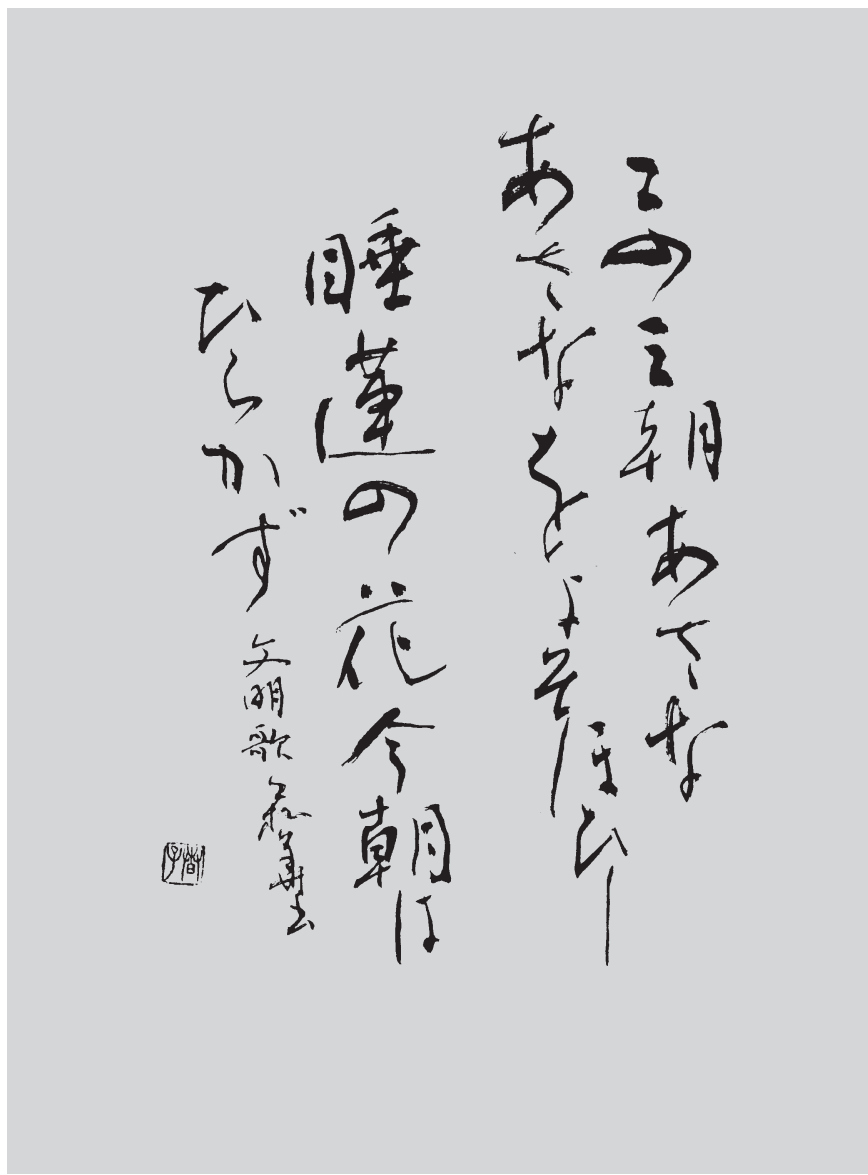 この三朝あさな
あさなをよそほひし
睡蓮の花今朝は
ひらかず
文明歌 書